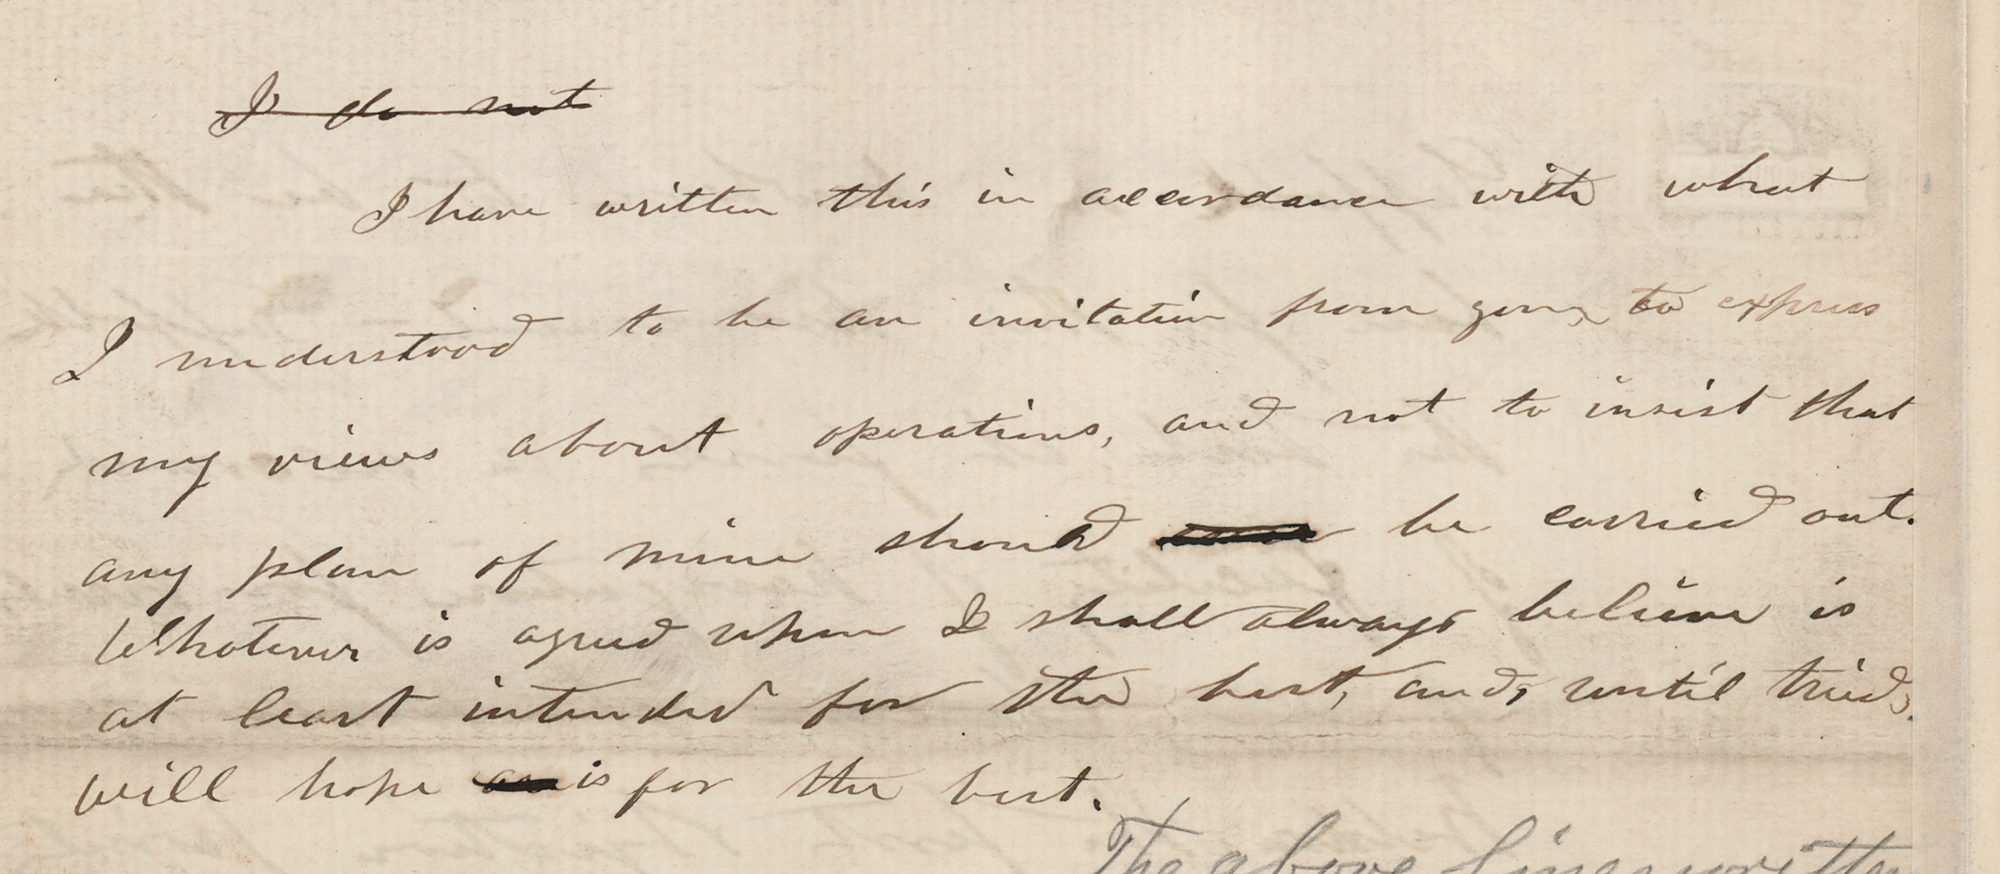 I do not
I have written this in accordance with what
I understood to be an invitation from you to express
my views about operations, and not to insist that
any plan of mine should be carried out.
Whatever is agreed upon I shall always believe is
at least intended for the best, and, until tried,
will hope is for the best.
The above lines written